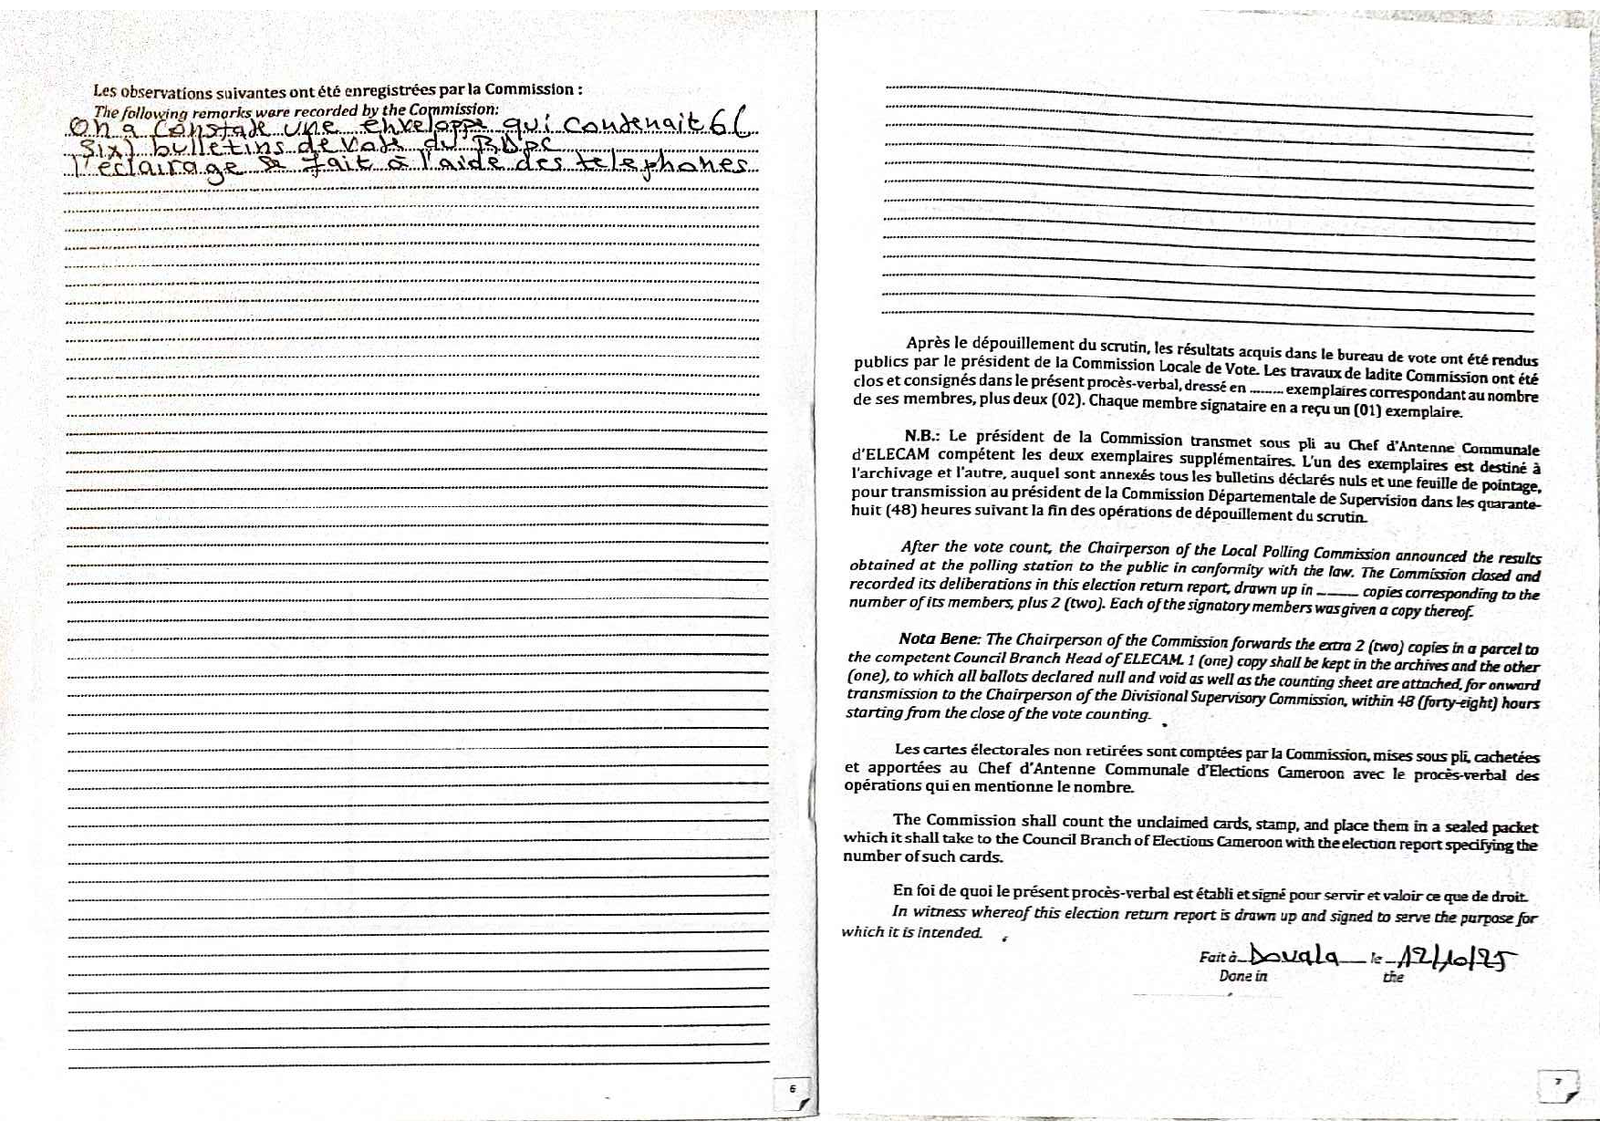 Les observations suivantes ont été enregistrées par la Commission :
The following remarks were recorded by the Commission:
On a constaté une enveloppe qui contenait 6 (
six) bulletins de vote du RDPC
l'éclairage se fait à l'aide des telephones
6
Après le dépouillement du scrutin, les résultats acquis dans le bureau de vote ont été rendus
publics par le président de la Commission Locale de Vote. Les travaux de ladite Commission ont été
clos et consignés dans le présent procès-verbal, dressé en ......... exemplaires correspondant au nombre
de ses membres, plus deux (02). Chaque membre signataire en a reçu un (01) exemplaire.
N.B.: Le président de la Commission transmet sous pli au Chef d'Antenne Communale
d'ELECAM compétent les deux exemplaires supplémentaires. L'un des exemplaires est destiné à
l'archivage et l'autre, auquel sont annexés tous les bulletins déclarés nuls et une feuille de pointage,
pour transmission au président de la Commission Départementale de Supervision dans les quarante-
huit (48) heures suivant la fin des opérations de dépouillement du scrutin.
After the vote count, the Chairperson of the Local Polling Commission announced the results
obtained at the polling station to the public in conformity with the law. The Commission closed and
recorded its deliberations in this election return report, drawn up in ______ copies corresponding to the
number of its members, plus 2 (two). Each of the signatory members was given a copy thereof.
Nota Bene: The Chairperson of the Commission forwards the extra 2 (two) copies in a parcel to
the competent Council Branch Head of ELECAM. 1 (one) copy shall be kept in the archives and the other
(one), to which all ballots declared null and void as well as the counting sheet are attached, for onward
transmission to the Chairperson of the Divisional Supervisory Commission, within 48 (forty-eight) hours
starting from the close of the vote counting.
Les cartes électorales non retirées sont comptées par la Commission, mises sous pli, cachetées
et apportées au Chef d'Antenne Communale d'Elections Cameroon avec le procès-verbal des
opérations qui en mentionne le nombre.
The Commission shall count the unclaimed cards, stamp, and place them in a sealed packet
which it shall take to the Council Branch of Elections Cameroon with the election report specifying the
number of such cards.
En foi de quoi le présent procès-verbal est établi et signé pour servir et valoir ce que de droit.
In witness whereof this election return report is drawn up and signed to serve the purpose for
which it is intended.
Fait à Douala le 12/10/25
Done in the
7